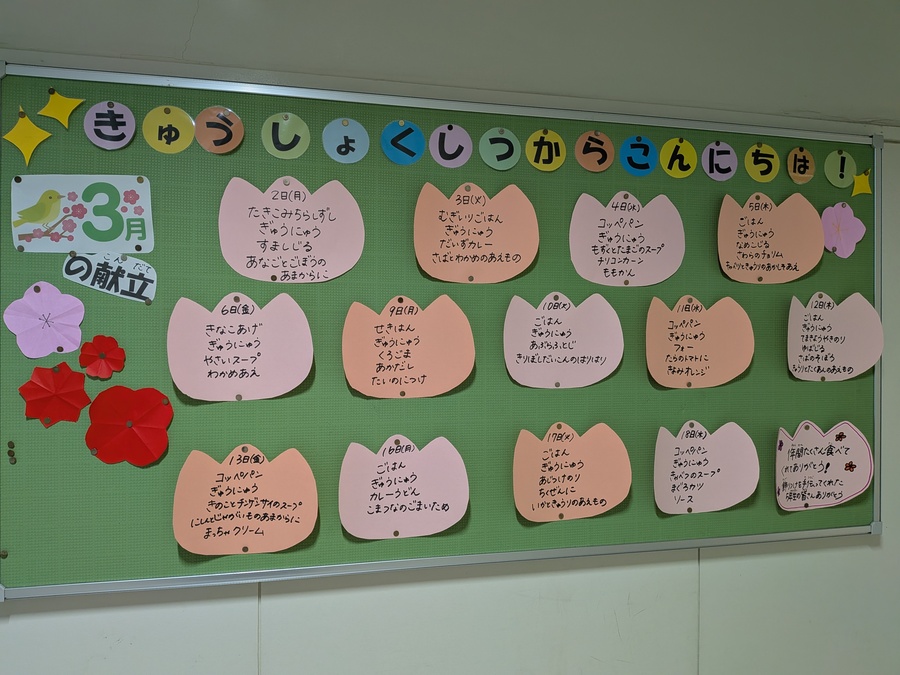 きゅうしょくしつからこんにちは!
3月
の献立
こんだて
2日(月)
たきこみちらしずし
ぎゅうにゅう
すましじる
あなごとごぼうの
あまからに
3日(火)
むぎいりごはん
ぎゅうにゅう
だいずカレー
さばとわかめのあえもの
4日(水)
コッペパン
ぎゅうにゅう
もずくとたまごのスープ
チリコンカーン
ももかん
5日(木)
ごはん
ぎゅうにゅう
なめこじる
さわらのチョリム
6日(金)
きなこあげ
ぎゅうにゅう
やさいスープ
わかめあえ
9日(月)
せきはん
ぎゅうにゅう
くろごま
あかだし
たいのにつけ
10日(火)
ごはん
ぎゅうにゅう
きりぼしだいこんのはりはり
11日(水)
コッペパン
ぎゅうにゅう
フォー
たらのトマトに
きよみオレンジ
12日(木)
ごはん
ぎゅうにゅう
てまきようやきのり
さばのそぼろ
きゅうりとたくあんのあえもの
13日(金)
コッペパン
ぎゅうにゅう
きのことチンゲンサイのスープ
にしんとじゃがいものあまからに
まっちゃクリーム
16日(月)
ごはん
ぎゅうにゅう
カレーうどん
こまつなのごまいため
17日(火)
ごはん
ぎゅうにゅう
あじつけのり
ちくぜんに
いかときゅうりのあえもの
18日(水)
コッペパン
ぎゅうにゅう
キャベツのスープ
まぐろカツ
ソース
1年間たくさん食べて
くれてありがとう!
の皆さんありがとう